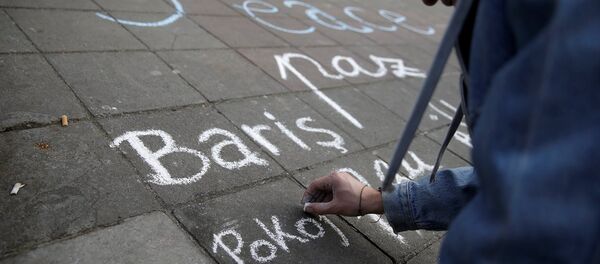 Peace
paz
Barış
Pokoj